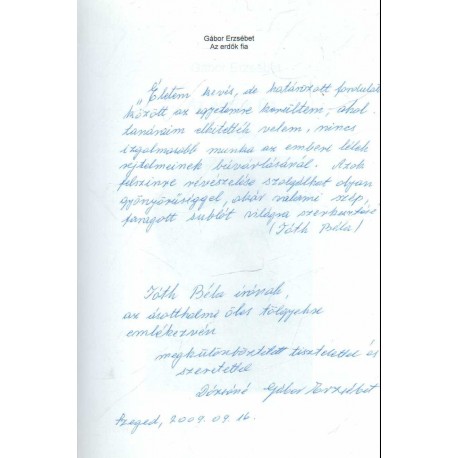 Gábor Erzsébet
Az erdők fia
"Életem kevés, de határozott fordulat
között az egyetemre kerültem, ahol
tanáraim elhitették velem, nincs
izgalmasabb munka az emberi lélek
rejtelmeinek búvárlásánál. Azok
felszínre révészelése szolgálhat olyan
gyönyörűséggel, akár valami szép,
faragott sublót világra szerkesztése
(Tóth Béla)
Tóth Béla írónak,
az ásotthalmi öles tölgyekre
emlékezvén
megkülönböztetett tisztelettel és
szeretettel
Gábor Erzsébet
Szeged, 2009. 09. 16.